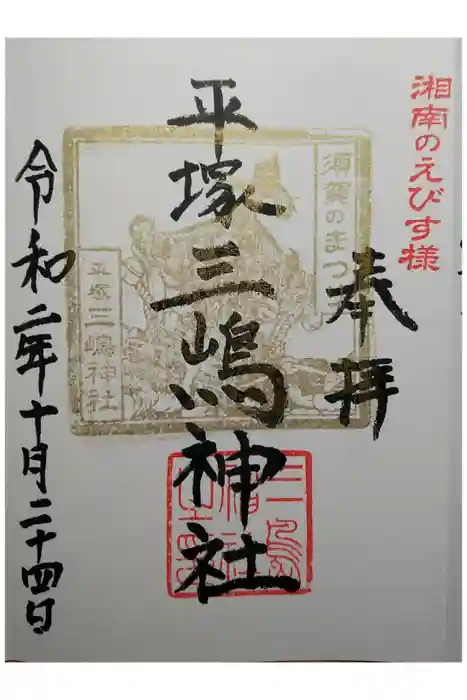 湘南のえびす様
奉拝
須賀のまつり
平塚三嶋神社
平塚三嶋神社
令和二年十月二十四日